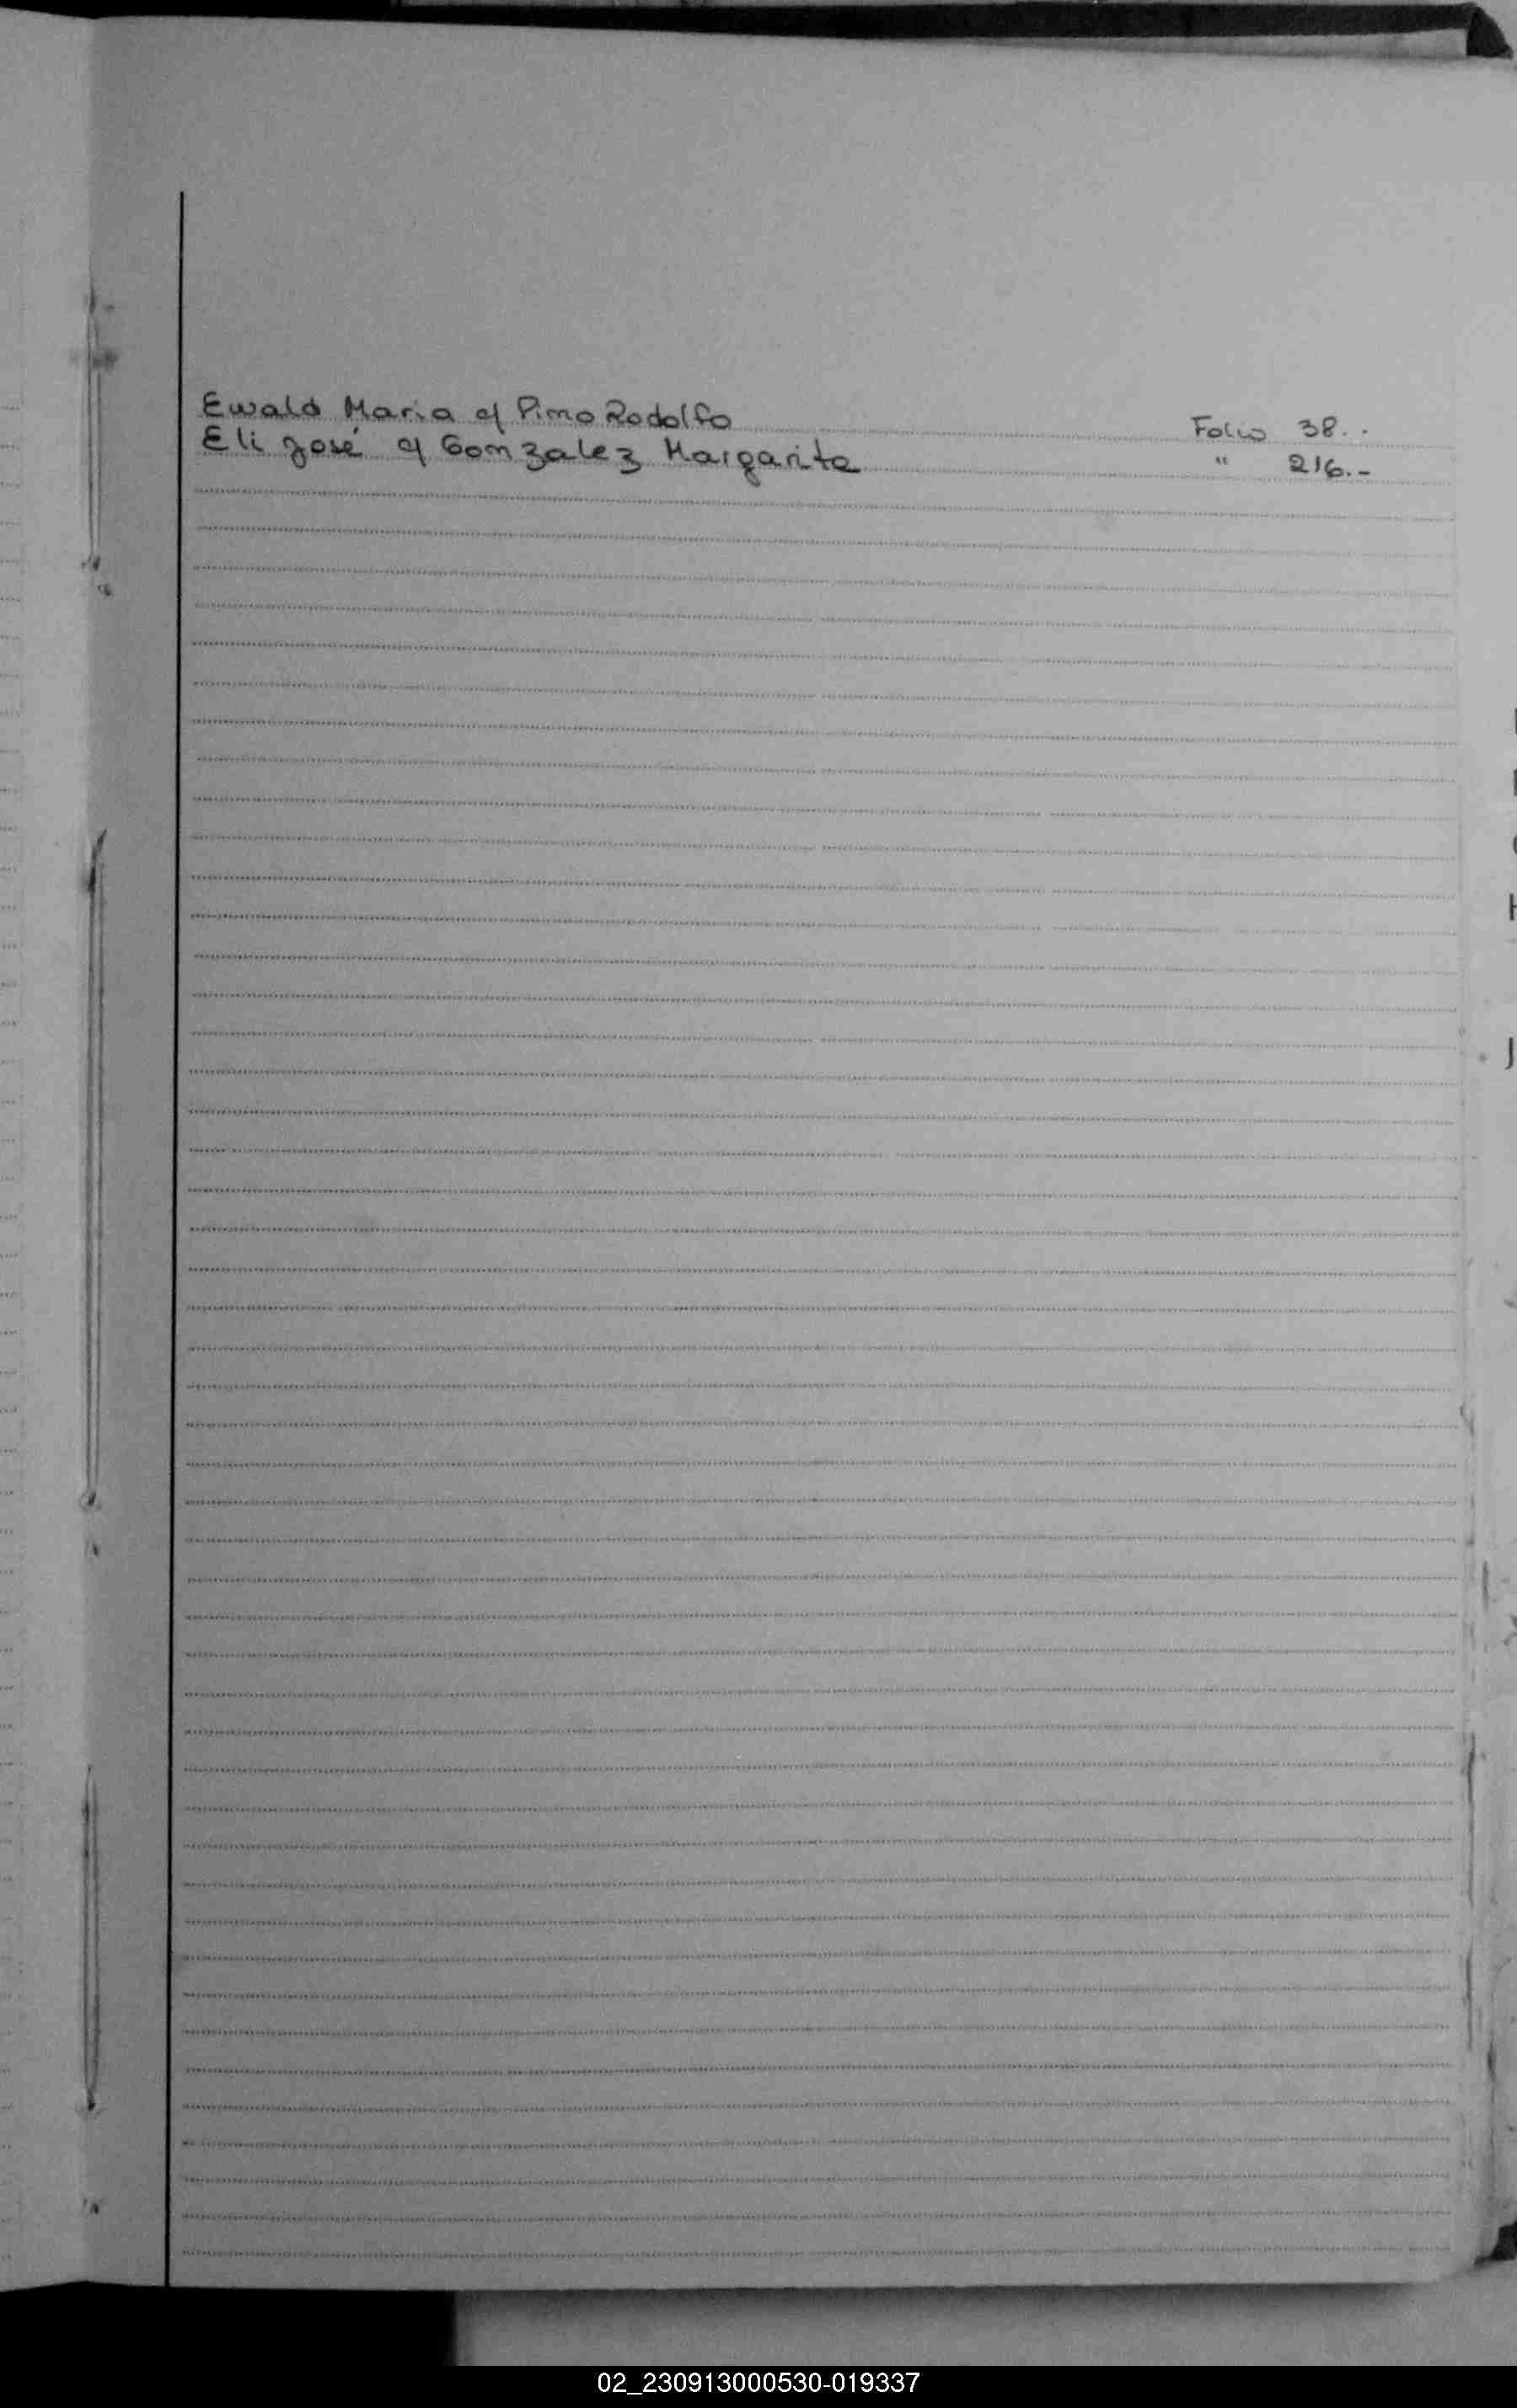 Ewald Maria c/ Pino Rodolfo Folio 38..
Eli José c/ Gonzalez Margarita " 216.-
02_230913000530-019337